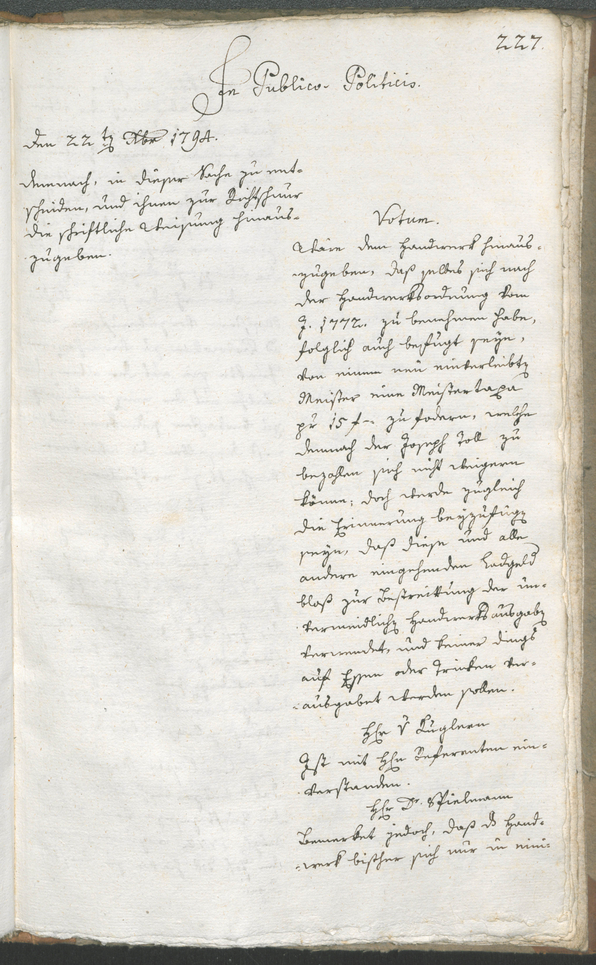 227.
In Publico-Politicis.
den 22 t. Xbr 1794.
demnach, in dieser Sache zu ent-
scheiden, und ihnen zur Richtschnur
die schriftliche Weisung hinaus-
zugeben.
Votum.
Wäre dem Handwerk hinaus-
zugeben, daß selbes sich nach
der Handwerksordnung vom
J. 1772. zu benehmen habe,
folglich auch befugt seye,
von einem neu einverleibten
Meister eine Meistertaxa
pr 15 f - zu fodern, welche
demnach der Joseph Toll zu
bezahlen sich nicht weigern
könne; doch werde zugleich
die Erinnerung beyzufügen
seyn, daß diese und alle
andere eingehenden Ladgeld
bloß zur Bestreittung der un-
vermeidlichen Handwerksausgaben
verwendet, und keiner dings
auf Essen oder Trinken ver-
ausgabet werden sollen.
Hr. v Kugleen
Ist mit Hrn Referenten ein-
verstanden.
Hr. Dr. Spielmann
Bemerket jedoch, daß ds Hand-
werk bisher sich nur in eini-